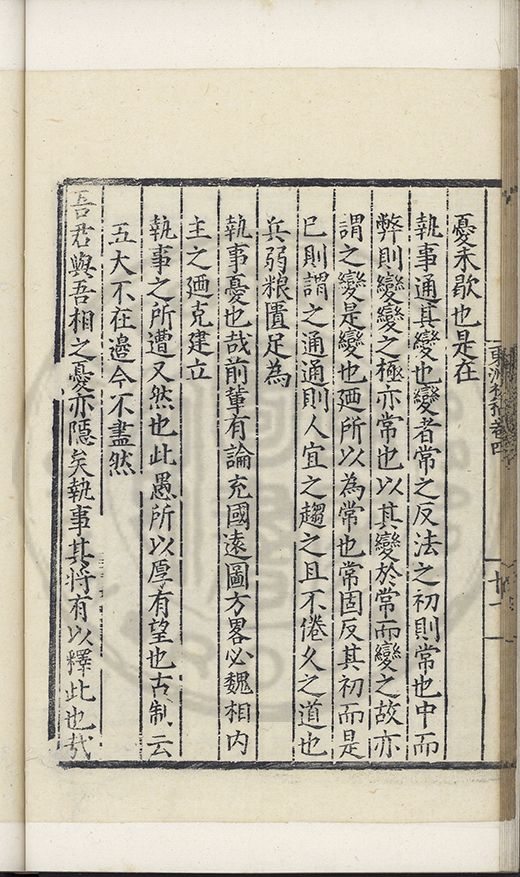 憂未歇也是在
執事通其變也變者常之反法之初則常也中而
弊則變變之極亦常也以其變於常而變之故亦
謂之變是變也廼所以為常也常固反其初而是
已則謂之通通則人宜之趨之且不倦久之道也
兵弱粮匱足為
執事憂也哉前軰有論充國遠圖方畧必魏相内
主之廼克建立
執事之所遭又然也此愚所以厚有望也古制云
五大不在邉今不盡然
吾君與吾相之憂亦隱矣執事其將有以釋此也㢤